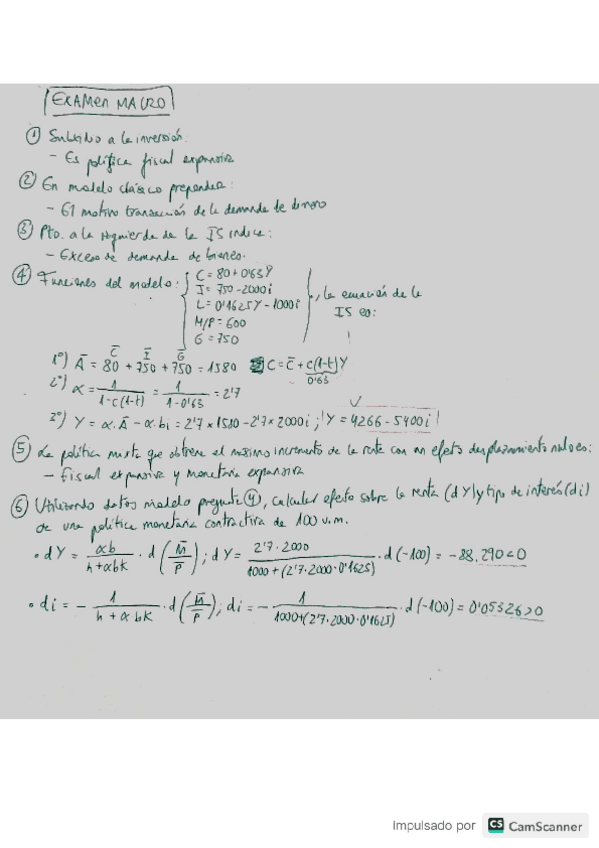 EXAMEN MACRO
① Subsidio a la inversión:
- Es política fiscal expansiva
② En modelo clásico prepondera:
- El motivo transacción de la demanda de dinero
③ Pto. a la izquierda de la IS indica:
- Exceso de demanda de bienes.
④ Funciones del modelo: { C = 80 + 0'63Y
I = 750 - 2000i
L = 0'1625Y - 1000i
M/P = 600
G = 750
} , la ecuación de la
IS es:
1º) Ā = 80 + 750 + 750 = 1580 C = C̄ + c(1-t)Y
C̄ Ī Ḡ
0'63
2º) α = 1/(1-c(1-t)) = 1/(1-0'63) = 2'7
3º) Y = α.Ā - α.bi = 2'7 x 1580 - 2'7 x 2000i ; Y = 4266 - 5400i
⑤ La política mixta que obtiene el máximo incremento de la renta con un efecto desplazamiento nulo es:
- Fiscal expansiva y monetaria expansiva
⑥ Utilizando datos modelo pregunta ④, calcular efecto sobre la renta (dY) y tipo de interés (di)
de una política monetaria contractiva de 100 u.m.
• dY = αb/(h+αbk) · d(M̄/P̄) ; dY = 2'7·2000/(1000+(2'7·2000·0'1625)) · d(-100) = -88,290 < 0
• di = - 1/(h+αbk) · d(M̄/P̄) ; di = - 1/(1000+(2'7·2000·0'1625)) · d(-100) = 0'05326 > 0
Impulsado por CS CamScanner